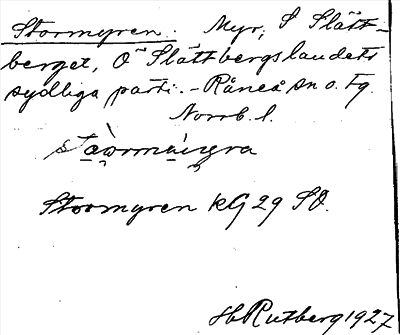 Stormyren. Myr, S Slått-
berget, O Slåttbergslandets
sydliga parti. - Råneå sn o. Fg.
Norrb. l.
Stormyren KG 29 SO.
Hb Rutberg 1927